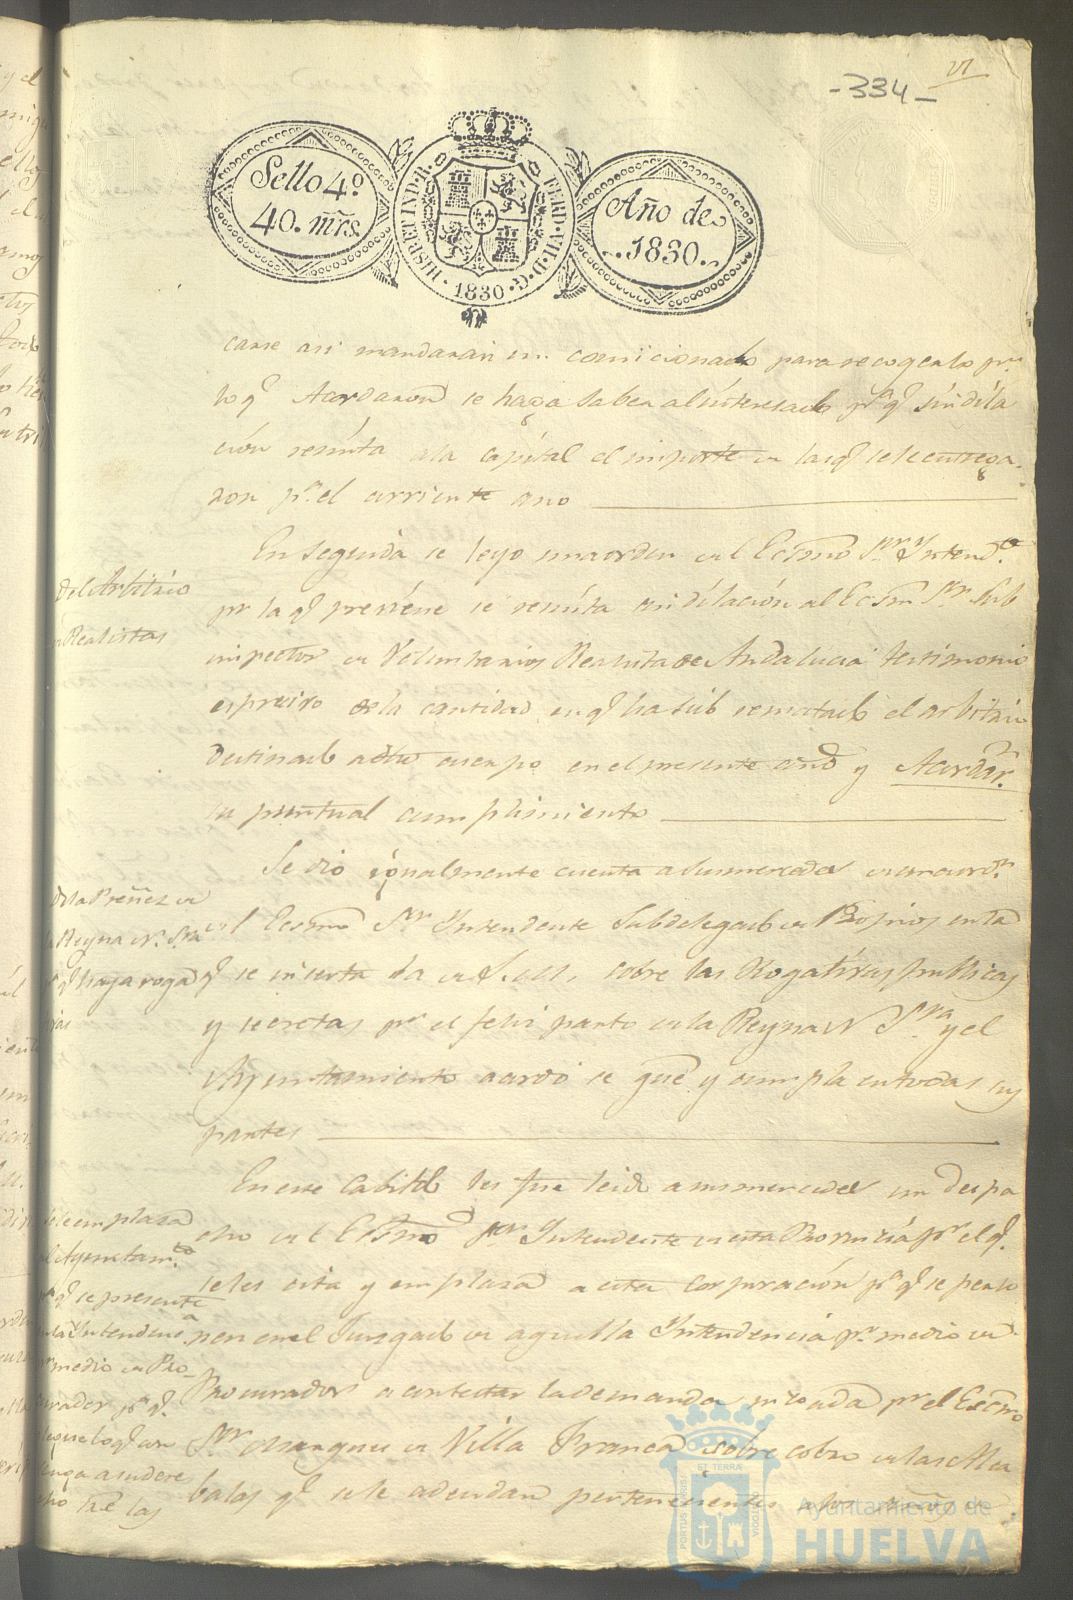 -334-
Sello 4º
40. mrs.
HISPET IND. R.
FERD. VII. D. G.
1830
Año de
1830.
carse asi mandaran un comicionado para recogerlo pr.
lo q.e Acordaron se haga saber al interesado pa. q.e sin dila
cion remita a la capital el importe de las q.e se le entrega
ron pa. el corriente ano
del Arbitrio
de Realistas
En seguida se leyo una orden del Ecsmo Sr. Intend.te
pr la q.e previene se remita sin dilacion al Ecsmo Sr. Sub
inspector de Voluntarios Realistas de Andalucia testimonio
espresivo de la cantidad en q.e ha sido rematado el arbitrio
destinado a dho cuerpo en el presente año y Acordar.n
su puntual cumplimiento
de la Preñez de
la Reyna N. Sra
pa. q.e haya rogati
vas
Se dio igualmente cuenta a sus mercedes de una ord.n
del Ecsmo Sr. Intendente Subdelegado de Propios en la
q.e se inserta la de S. M. sobre las Rogativas publicas
y secretas pr. el feliz parto de la Reyna N. Sra. y el
Ayuntamiento acordó se gue. y cumpla en todas sus
partes
Se emplaza
al Ayuntam.to
pa. q.e se presente
en la Intendencia
pr. medio de Pro-
curador pa. q.e
esponga lo q.e con
venga a su dere
cho sre las
En este Cabildo les fue leido a sus mercedes un despa
cho del Ecsmo Sr. Intendente de esta Provincia pr. el q.e
se les cita y emplaza a esta corporación pa. q.e se perso
nen en el Juzgado de aquella Intendencia pr. medio de
Procurador a contestar la demanda incoada pr. el Ecsmo
Sr. Marques de Villa Franca sobre cobro de las Alca
balas q.e se le adeudan pertenecientes a los años de
PORTUS MARIS
ET TERRÆ
CUSTODIA
Ayuntamiento de
HUELVA